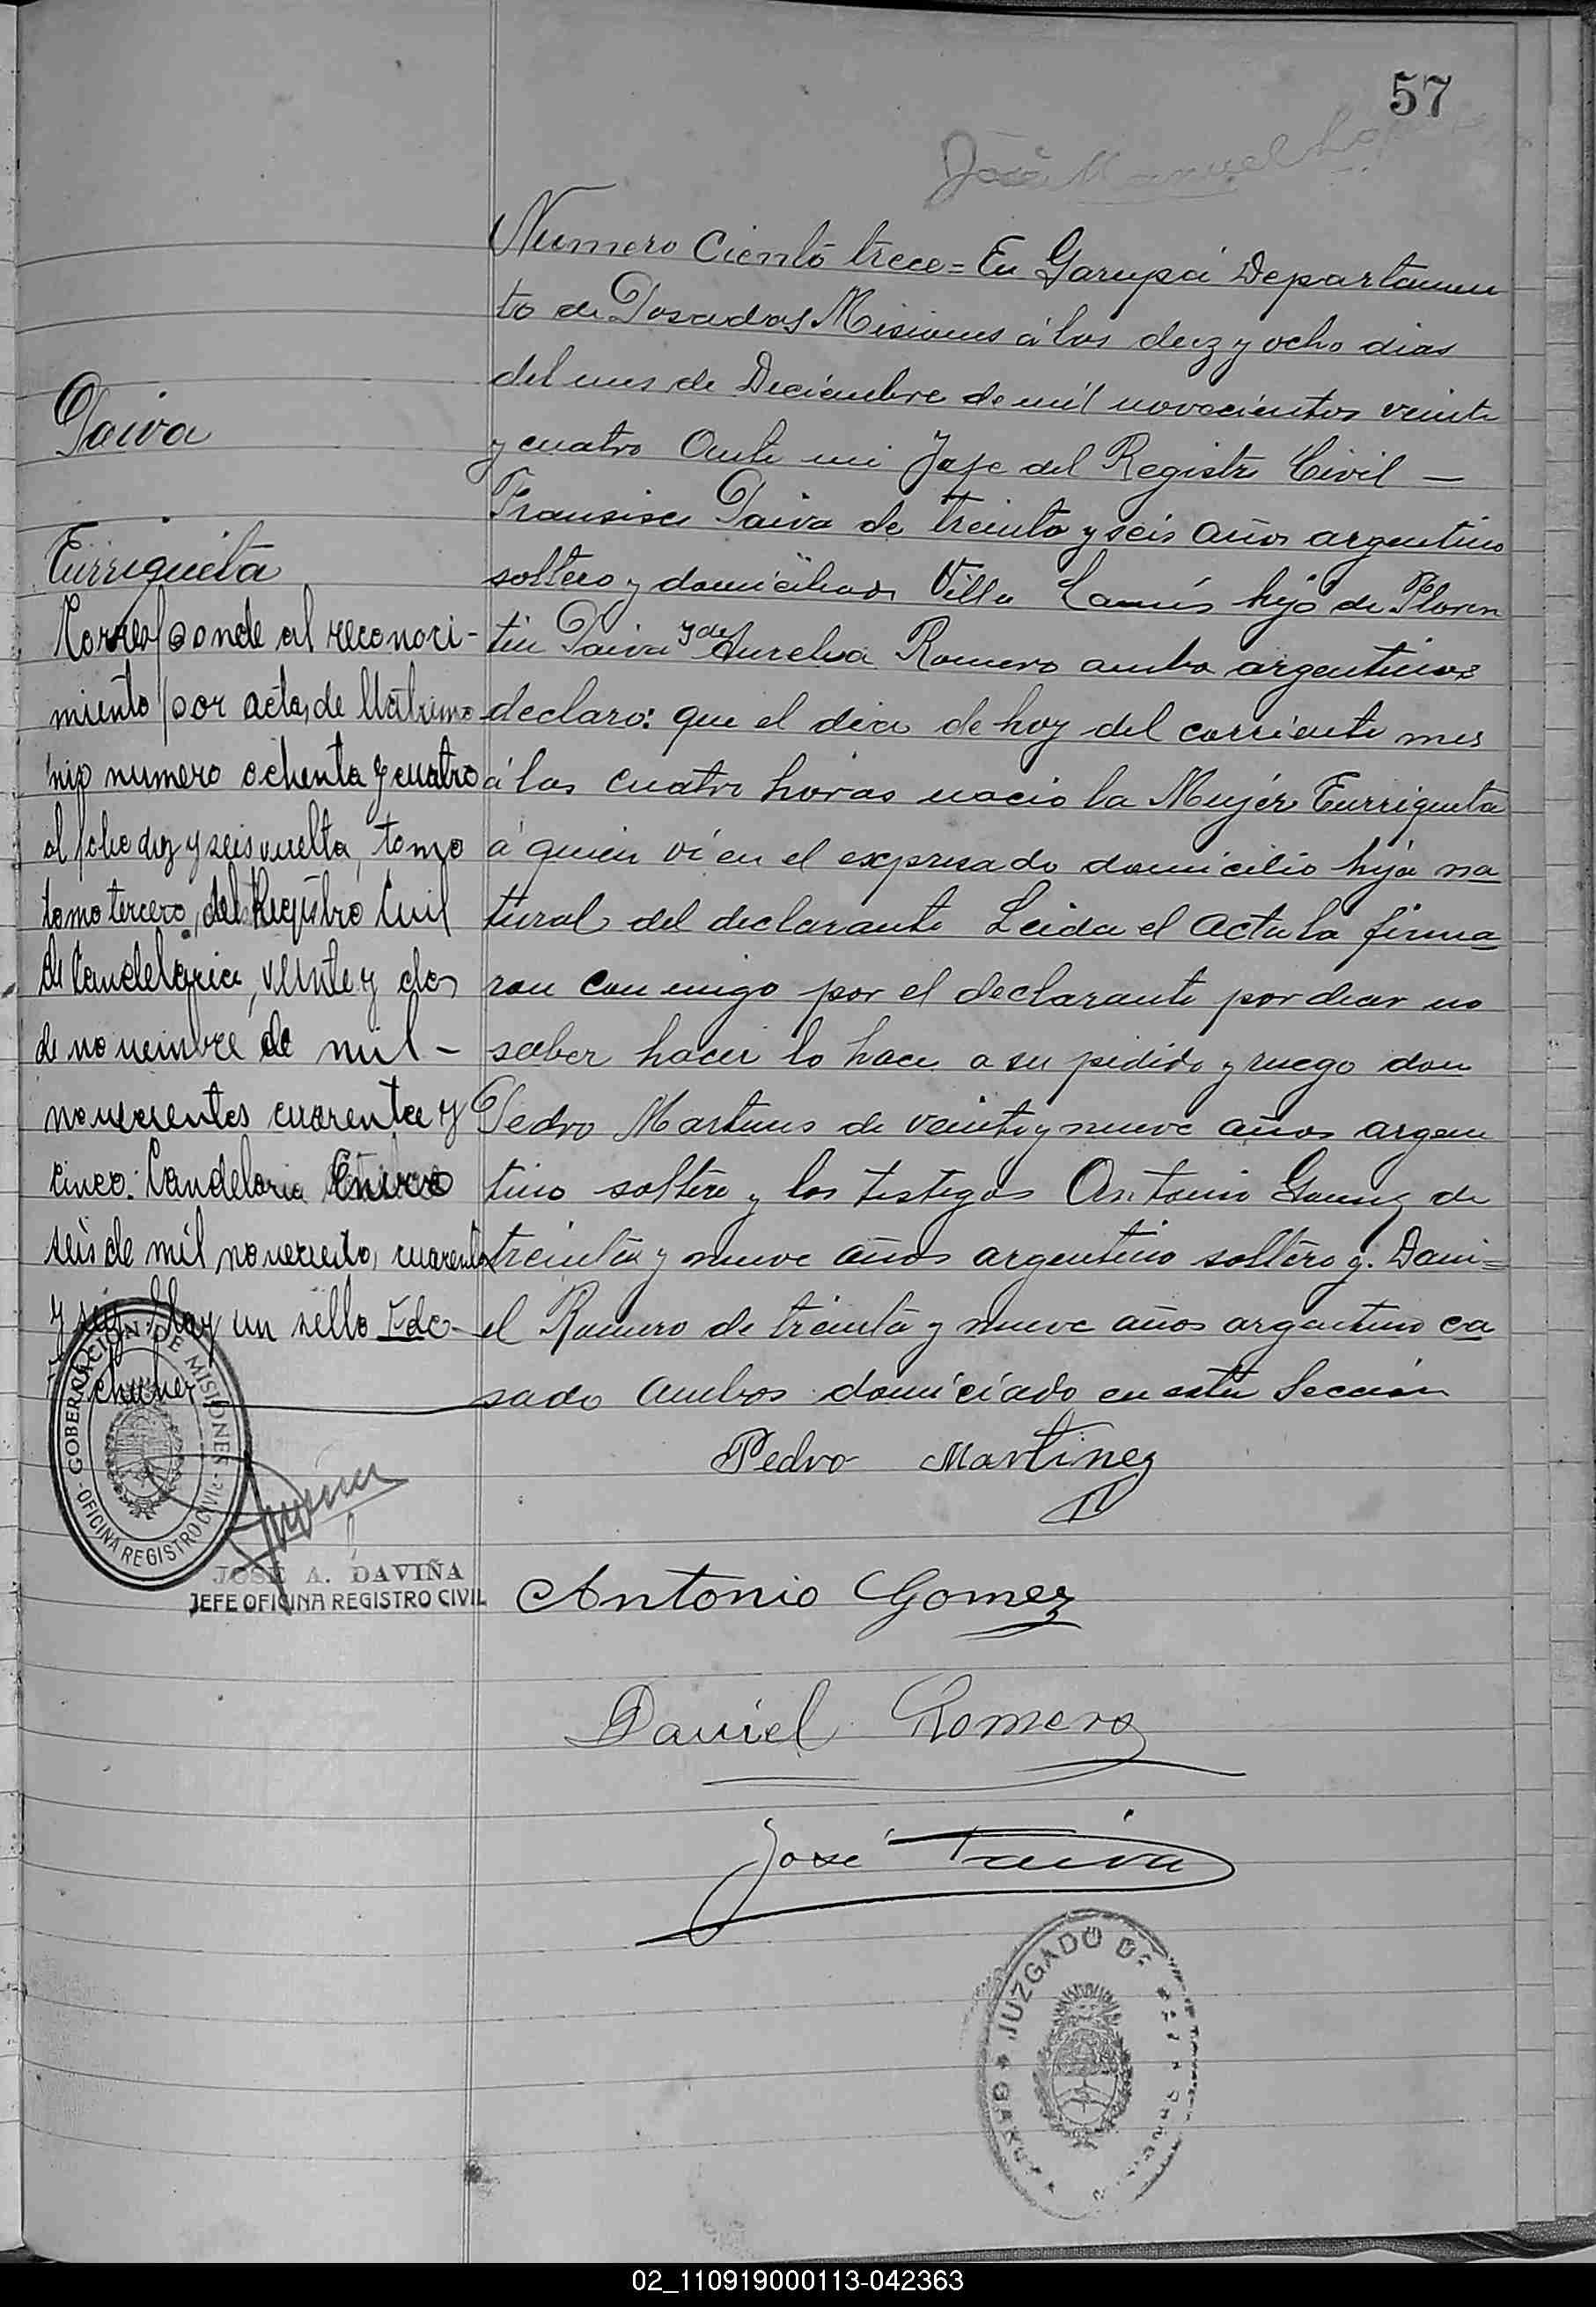 57
José Manuel
Numero Ciento trece = En Garupá Departamen
to de Posadas Misiones á los diez y ocho dias
del mes de Deciembre de mil novecientos veinte
y cuatro Ante mi Jefe del Registro Civil —
Fransisco Paiva de treinta y seis años argentino
soltero y domiciliado Villa Lanús hijo de Floren
tin Paiva y de Aurelia Romero ambo argentinos
declaro: que el dia de hoy del corriente mes
á las cuatro horas nacio la Mujer Eurriqueta
á quien ví en el expresado domicilio hija na
tural del declarante Leida el Acta la firma
ron con migo por el declarante por decir no
saber hacer lo hace a su pedido y ruego don
Pedro Martines de veinte y nueve años argen
tino soltero y los testigos Antonio Gomez de
treinta y nueve años argentino soltero y. Dani=
el Romero de treinta y nueve años argentino ca
sado Ambos domiciado en esta Sección
Pedro Martinez
Antonio Gomez
Daniel Romero
José Paiva
Paiva
Eurriqueta
Corresponde al reconoci-
miento por acta, de Matrimo
nio numero ochenta y cuatro
al folio diez y seis vuelta, tomo
tomo tercero, del Registro Civil
de Candelaria, veinte y dos
de noviembre de mil -
novecientos cuarenta y
cinco. Candelaria Enero
seis de mil novecientos cuarenta
y seis. Hay un sello
GOBERNACIÓN DE MISIONES
OFICINA REGISTRO CIVIL
JOSÉ A. DAVIÑA
JEFE OFICINA REGISTRO CIVIL
JUZGADO DE
02_110919000113-042363